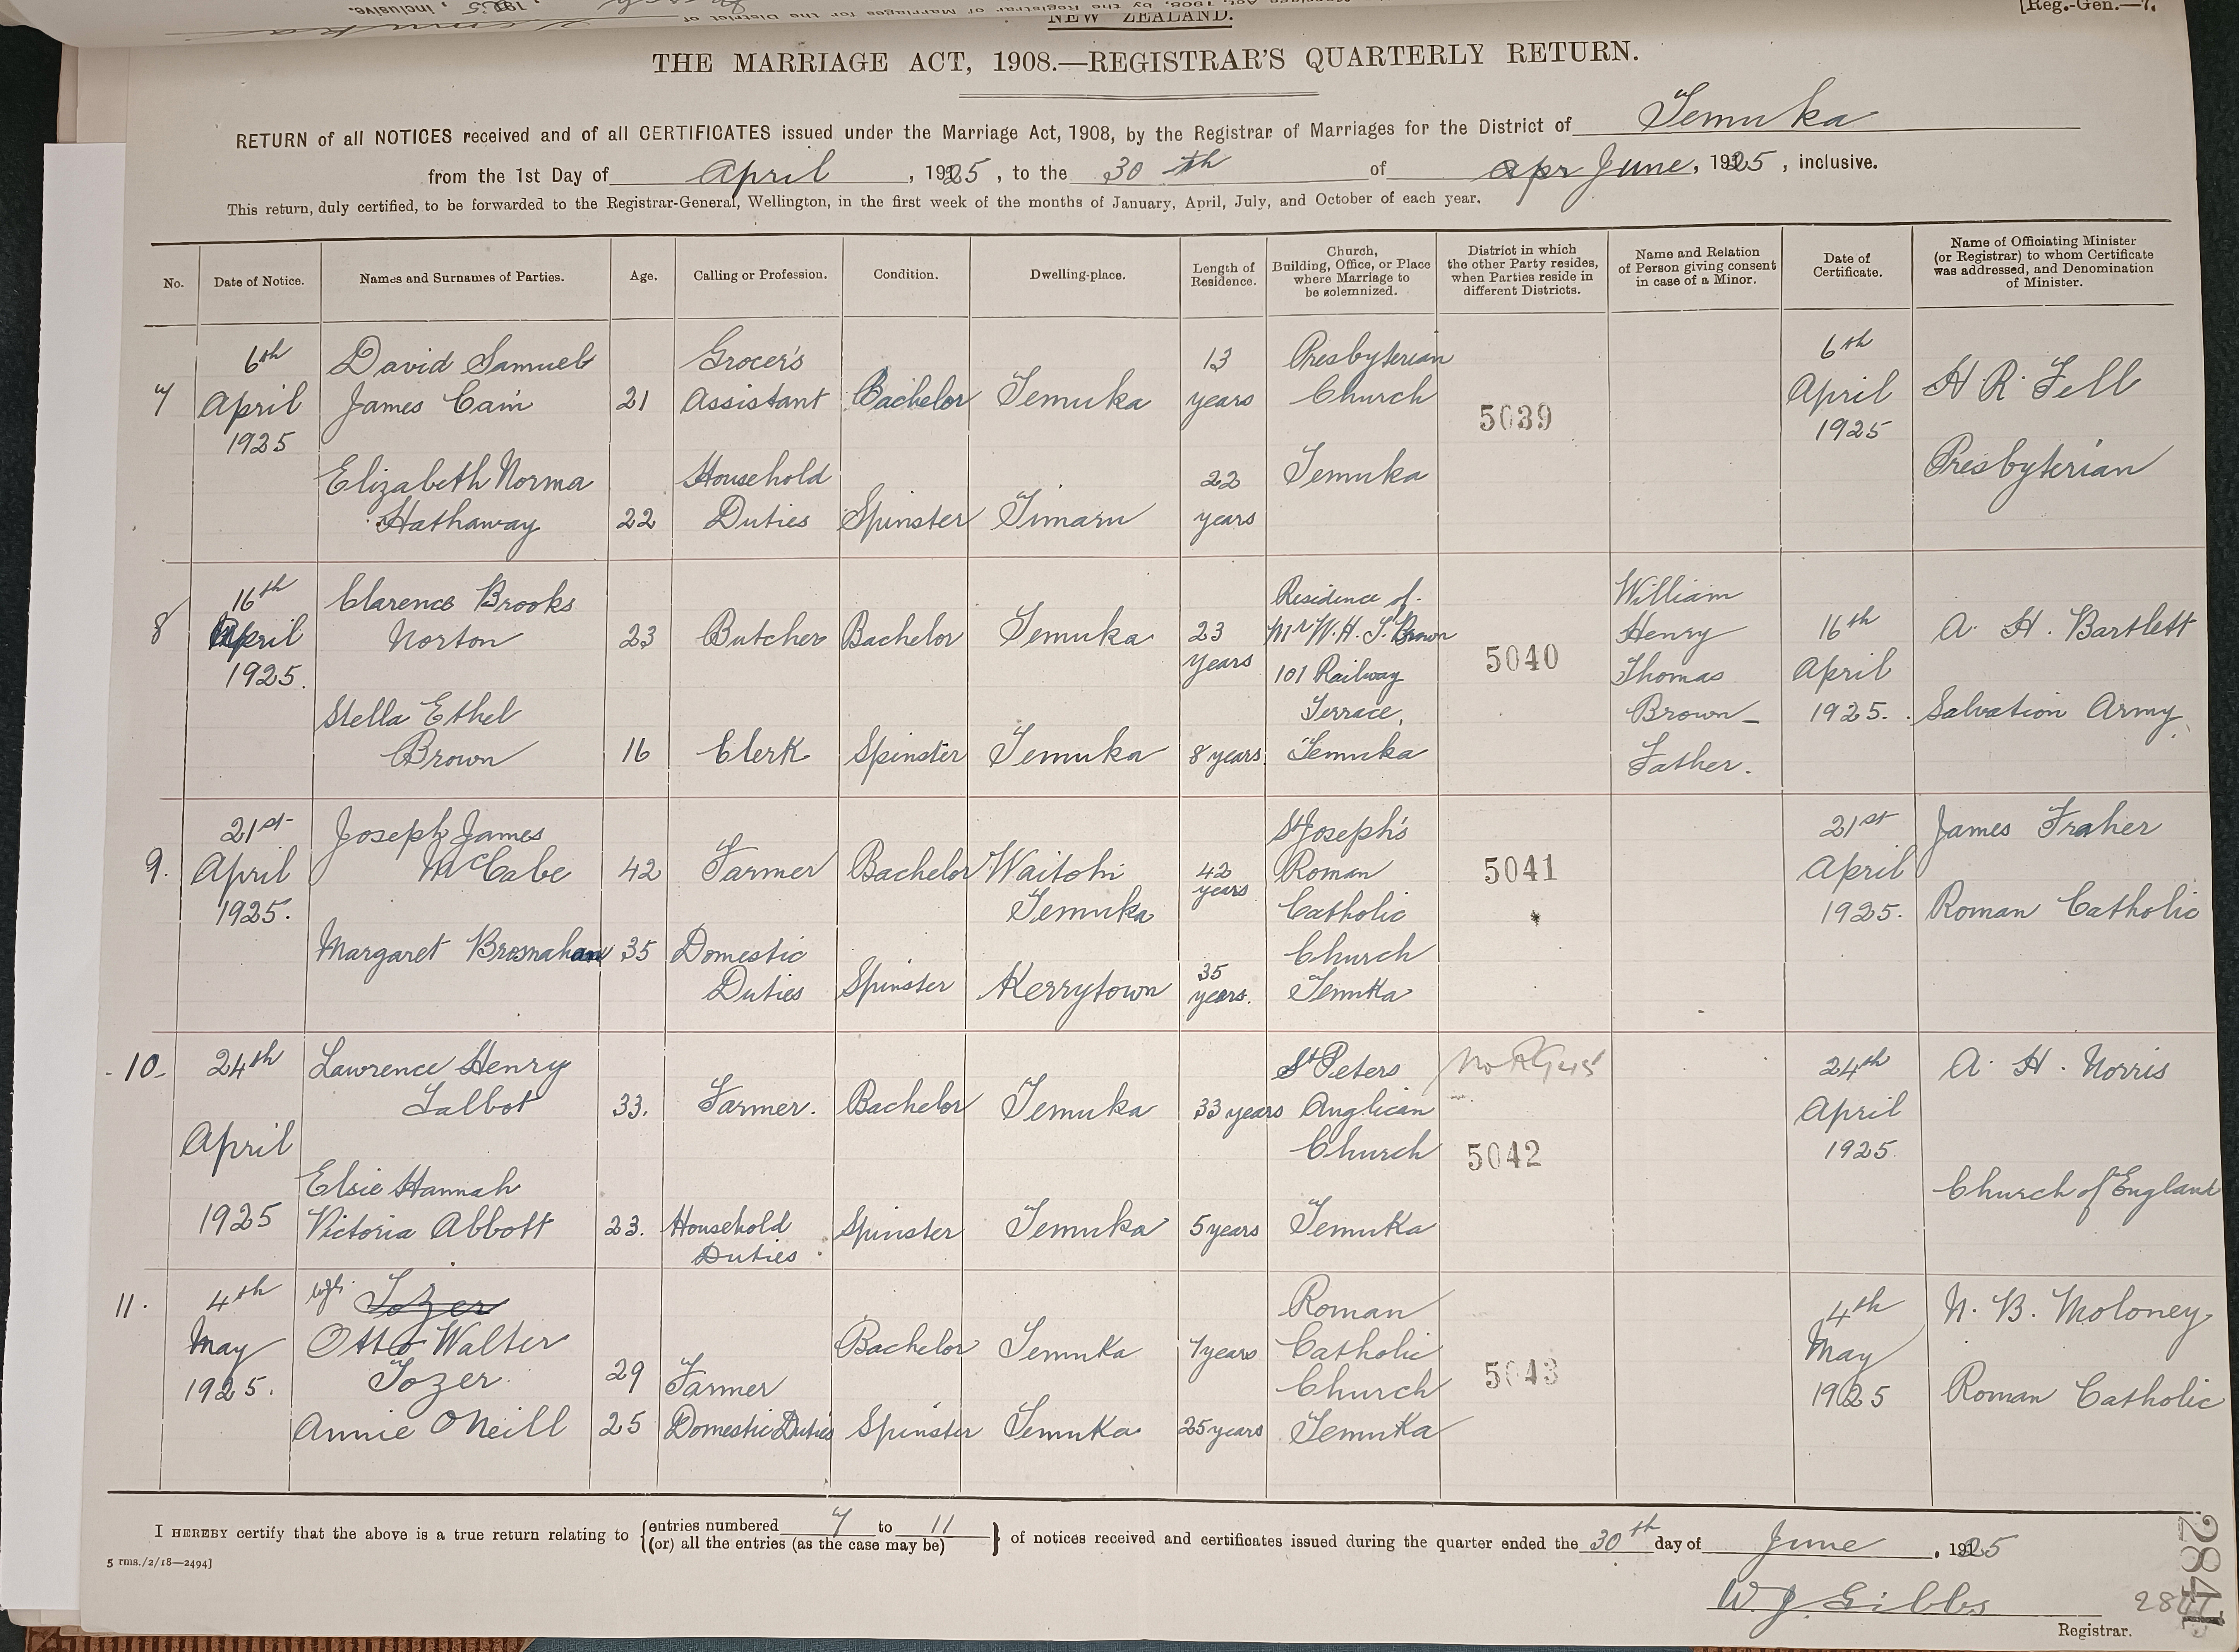 NEW ZEALAND.
[Reg.-Gen.—7.
THE MARRIAGE ACT, 1908.—REGISTRAR'S QUARTERLY RETURN.
RETURN of all NOTICES received and of all CERTIFICATES issued under the Marriage Act, 1908, by the Registrar of Marriages for the District of Temuka
from the 1st Day of April, 1925, to the 30th of apr June, 1925, inclusive.
This return, duly certified, to be forwarded to the Registrar-General, Wellington, in the first week of the months of January, April, July, and October of each year.
No.
Date of Notice.
Names and Surnames of Parties.
Age.
Calling or Profession.
Condition.
Dwelling-place.
Length of
Residence.
Church,
Building, Office, or Place
where Marriage to
be solemnized.
District in which
the other Party resides,
when Parties reside in
different Districts.
Name and Relation
of Person giving consent
in case of a Minor.
Date of
Certificate.
Name of Officiating Minister
(or Registrar) to whom Certificate
was addressed, and Denomination
of Minister.
7
6th
April
1925
David Samuel
James Cain
21
Grocer's
Assistant
Bachelor
Temuka
13
years
Presbyterian
Church
Temuka
5039
6th
April
1925
H R. Fell
Presbyterian
Elizabeth Norma
Hathaway
22
Household
Duties
Spinster
Timaru
22
years
8
16th
April
1925.
Clarence Brooks
Norton
23
Butcher
Bachelor
Temuka
23
years
Residence of
Mr W. H. T. Brown
101 Railway
Terrace,
Temuka
5040
William
Henry
Thomas
Brown –
Father.
16th
April
1925.
A. H. Bartlett
Salvation Army.
Stella Ethel
Brown
16
Clerk
Spinster
Temuka
8 years
9.
21st
April
1925.
Joseph James
McCabe
42
Farmer
Bachelor
Waitohi
Temuka
42
years
St Joseph's
Roman
Catholic
Church
Temuka
5041
21st
April
1925.
James Fraher
Roman Catholic
Margaret Brosnahan
35
Domestic
Duties
Spinster
Kerrytown
35
years.
10
24th
April
1925
Lawrence Henry
Talbot
33.
Farmer.
Bachelor
Temuka
33 years
St Peters
Anglican
Church
Temuka
5042
24th
April
1925.
A. H. Norris
Church of England
Elsie Hannah
Victoria Abbott
23.
Household
Duties.
Spinster
Temuka
5 years
11.
4th
May
1925.
Tozer
Otto Walter
Tozer.
29
Farmer
Bachelor
Temuka
7 years
Roman
Catholic
Church
Temuka
5043
4th
May
1925
N. B. Moloney
Roman Catholic
Annie O'Neill
25
Domestic Duties
Spinster
Temuka
25 years
I HEREBY certify that the above is a true return relating to {entries numbered 7 to 11
(or) all the entries (as the case may be)} of notices received and certificates issued during the quarter ended the 30th day of June, 1925
5 rms./2/18—2494]
W. J. Gibbs
Registrar.
2841